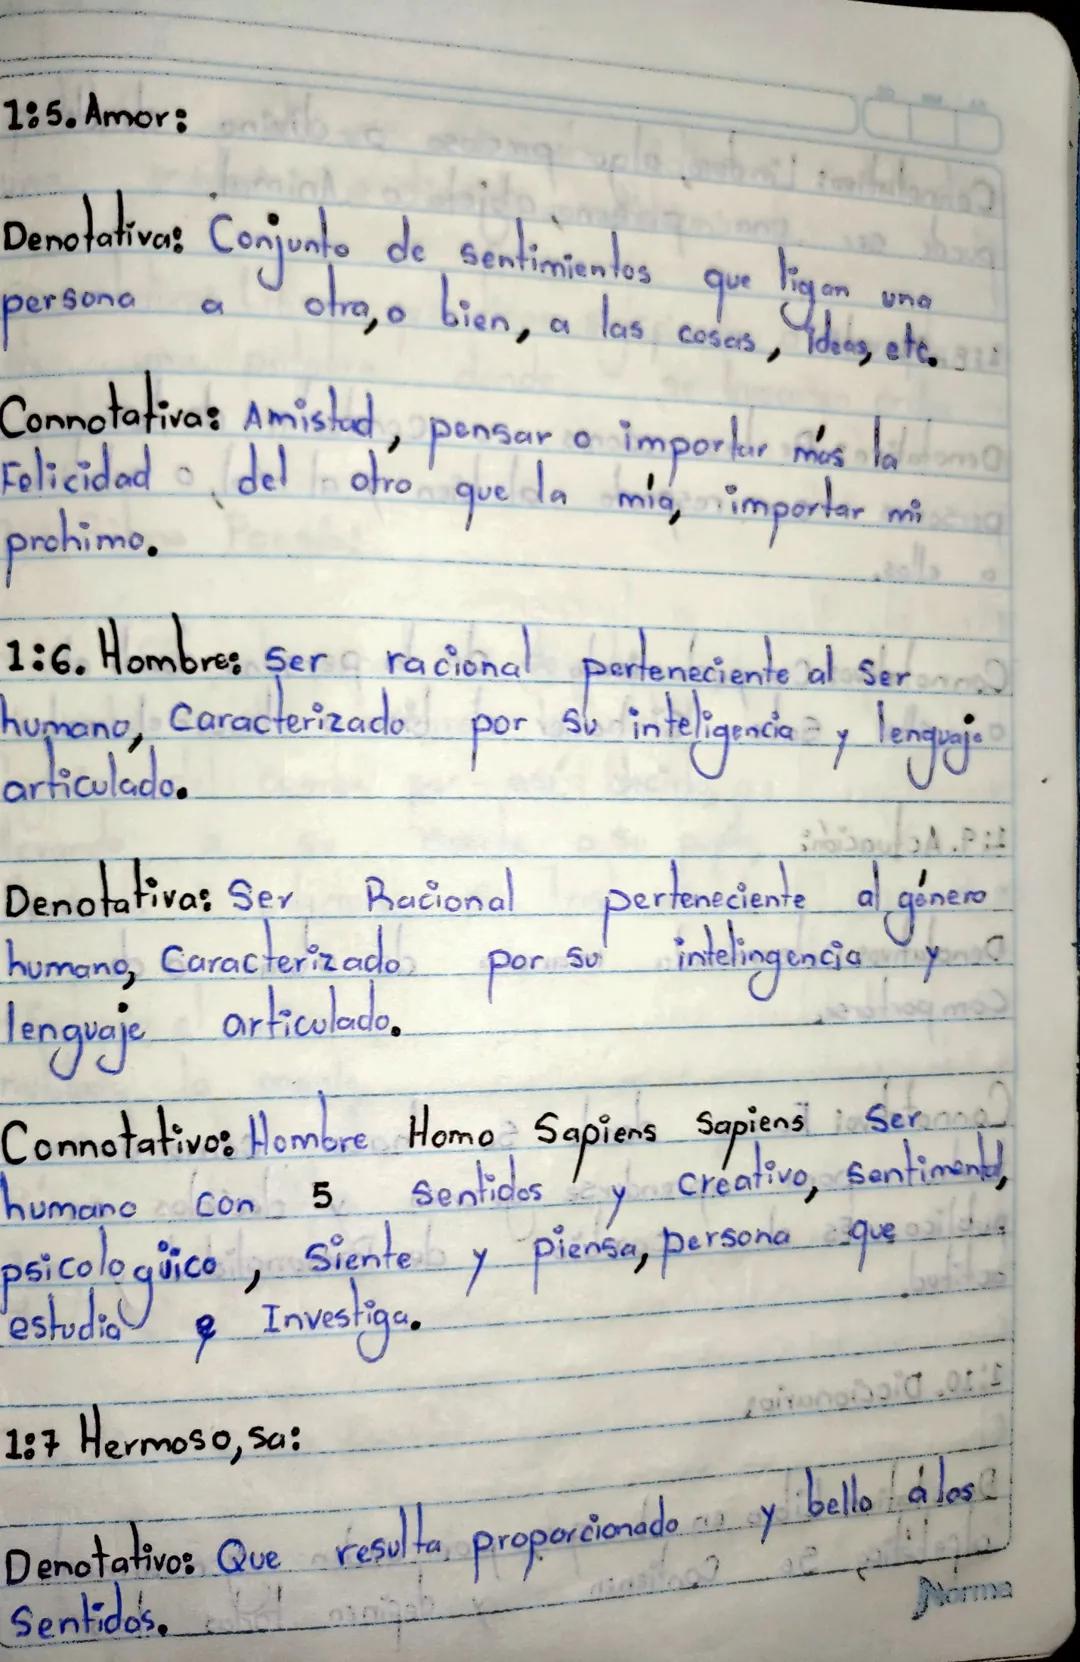 1:5. Amor:
Denotativa: Conjunto de sentimientos que ligan una
persona a otra, o bien, a las cosas, ideas, etc.
Connotativa: Amistad, pensar o importar más la
Felicidad o del otro que la mía, importar mi
prohimo.
1:6. Hombre: Ser racional perteneciente al Ser
humano, Caracterizado por su inteligencia y lenguaje
articulado.
Denotativa: Ser Racional perteneciente al género
humano, Caracterizado por su intelingencia y
lenguaje articulado.
Connotativo: Hombre Homo Sapiens Sapiens Ser
humano con 5 sentidos y creativo, sentimental,
psicologüico, Siente y piensa, persona que
estudia e Investiga.
1:7 Hermoso, sa:
Denotativo: Que resulta proporcionado y bello a los
Sentidos.
Norma